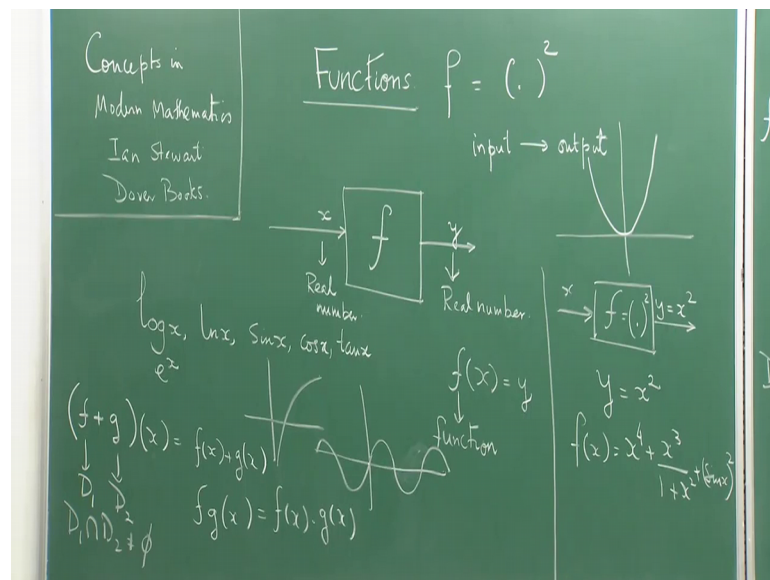 Concepts in
Modern Mathematics
Ian Stewart
Dover Books.
Functions f = (.)²
input → output
x f y
Real number.
Real number.
x f=(.)² y=x²
y = x²
log x, ln x, sin x, cos x, tan x
eˣ
f(x) = y
function
f(x) = x⁴ + x³/(1+x²) + (sin x)²
(f+g)(x) = f(x)+g(x)
D₁ D₂
D₁∩D₂ ≠ φ
fg(x) = f(x).g(x)